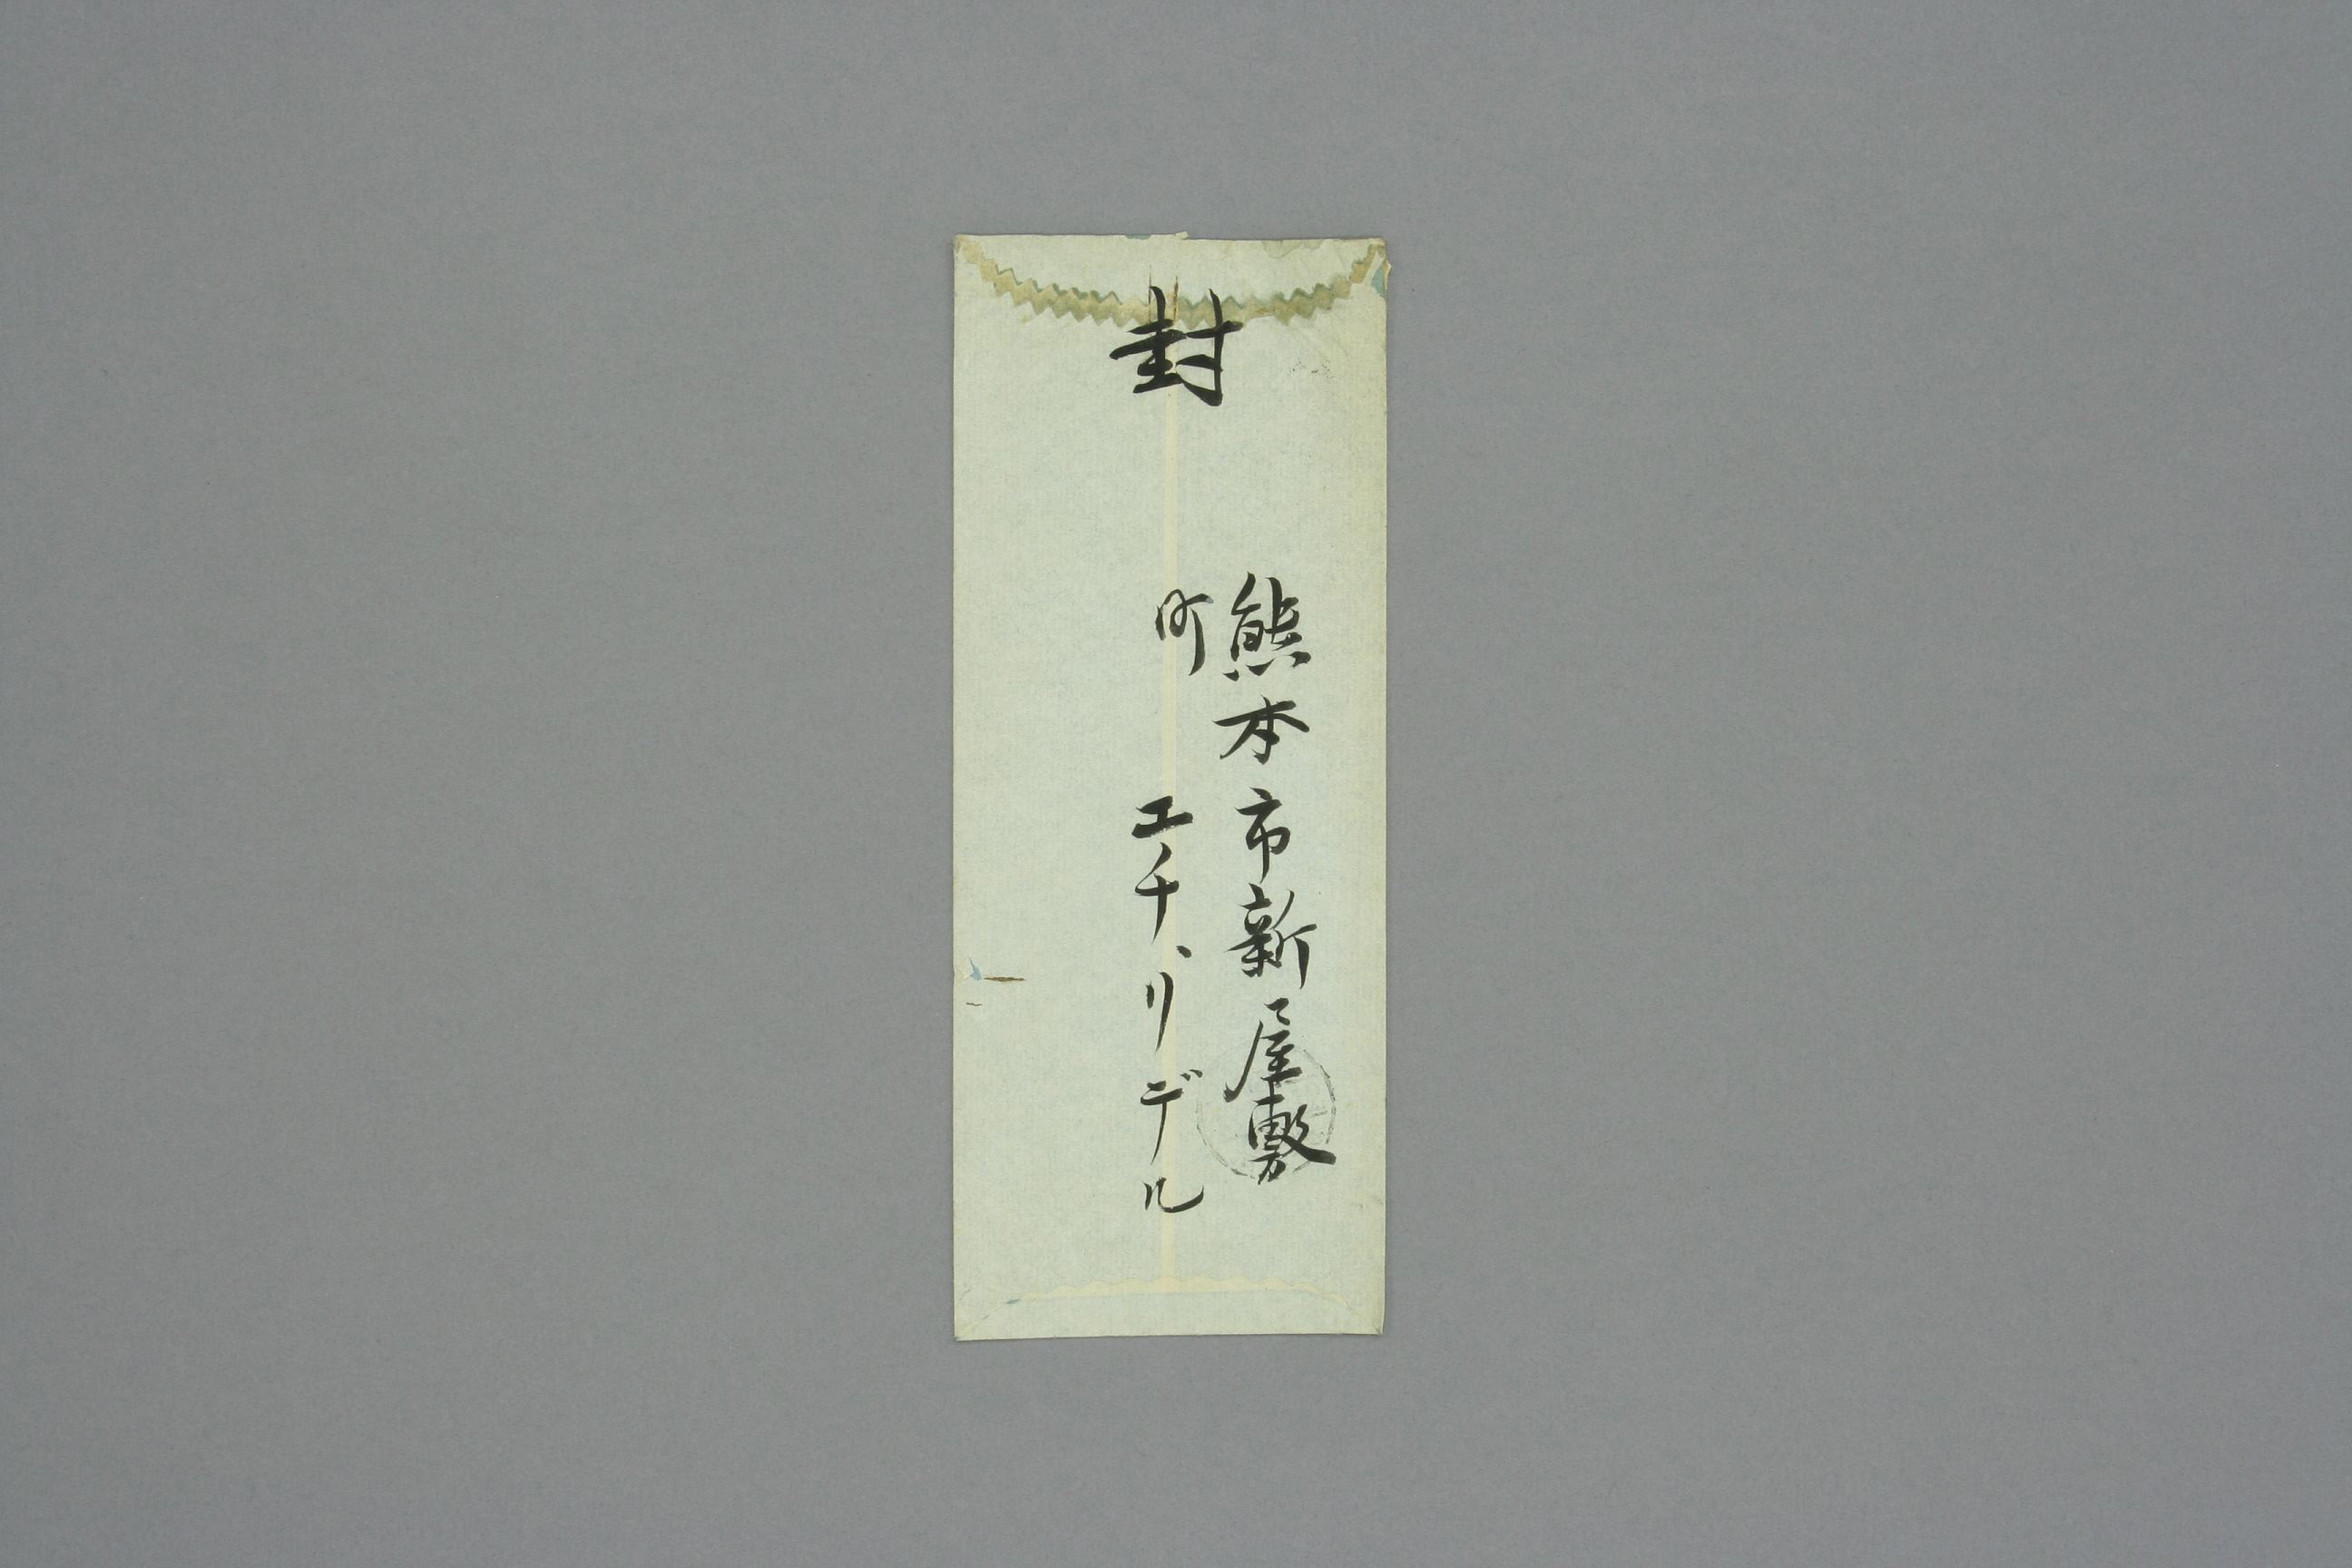 封
熊本市新屋敷
町
エチ、リデル